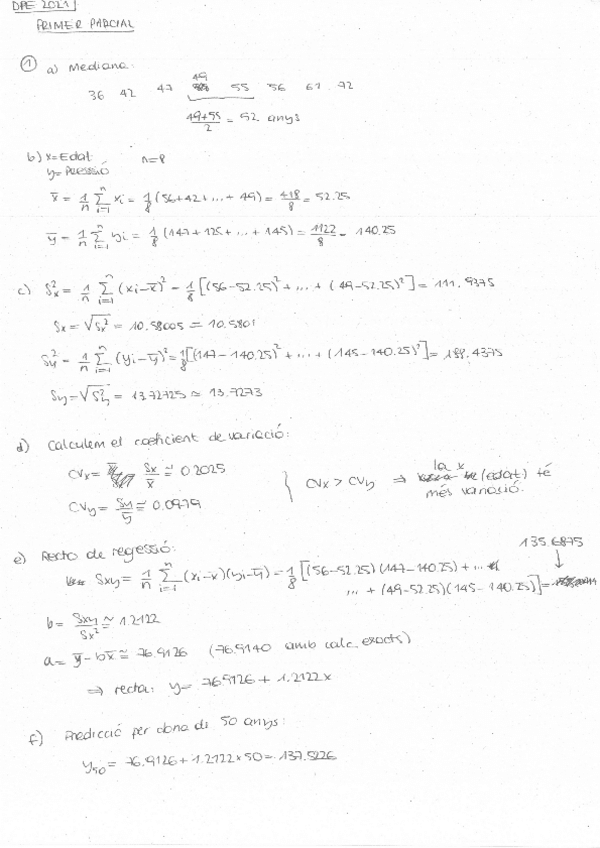 DPE 2021
PRIMER PARCIAL
1 a) Mediana:
36 42 47 49 55 56 61 72
(49+55)/2 = 52 anys
b) x=Edat n=8
y=Pressió
x̄ = 1/n Σ_{i=1}^{n} xi = 1/8 (56+42+...+49) = 418/8 = 52.25
ȳ = 1/n Σ_{i=1}^{n} yi = 1/8 (147+125+...+145) = 1122/8 = 140.25
c) Sx² = 1/n Σ_{i=1}^{n} (xi-x̄)² = 1/8 [(56-52.25)²+...+(49-52.25)²] = 111.9375
Sx = √Sx² = 10.58005 ≃ 10.5801
Sy² = 1/n Σ_{i=1}^{n} (yi-ȳ)² = 1/8 [(147-140.25)²+...+(145-140.25)²] = 188.4375
Sy = √Sy² = 13.72725 ≃ 13.7273
d) Calculem el coeficient de variació:
CVx = Sx/x̄ ≃ 0.2025
CVy = Sy/ȳ ≃ 0.0979
CVx > CVy ⇒ la x (edat) té
més variació.
e) Recta de regressió:
135.6875
Sxy = 1/n Σ_{i=1}^{n} (xi-x̄)(yi-ȳ) = 1/8 [(56-52.25)(147-140.25)+...
...+(49-52.25)(145-140.25)] =
b = Sxy/Sx² ≃ 1.2122
a = ȳ-bx̄ ≃ 76.9126 (76.9140 amb calc. exacts)
⇒ recta: y = 76.9126+1.2122x
f) Predicció per dona de 50 anys:
y50 = 76.9126+1.2122×50 = 137.5226